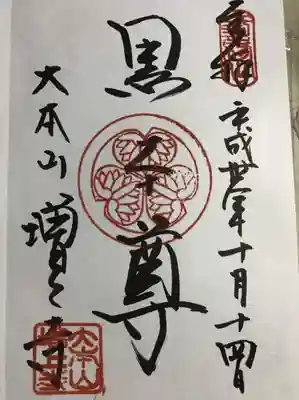 奉拝
平成卅年十月十四日
黒本尊
大本山増上寺